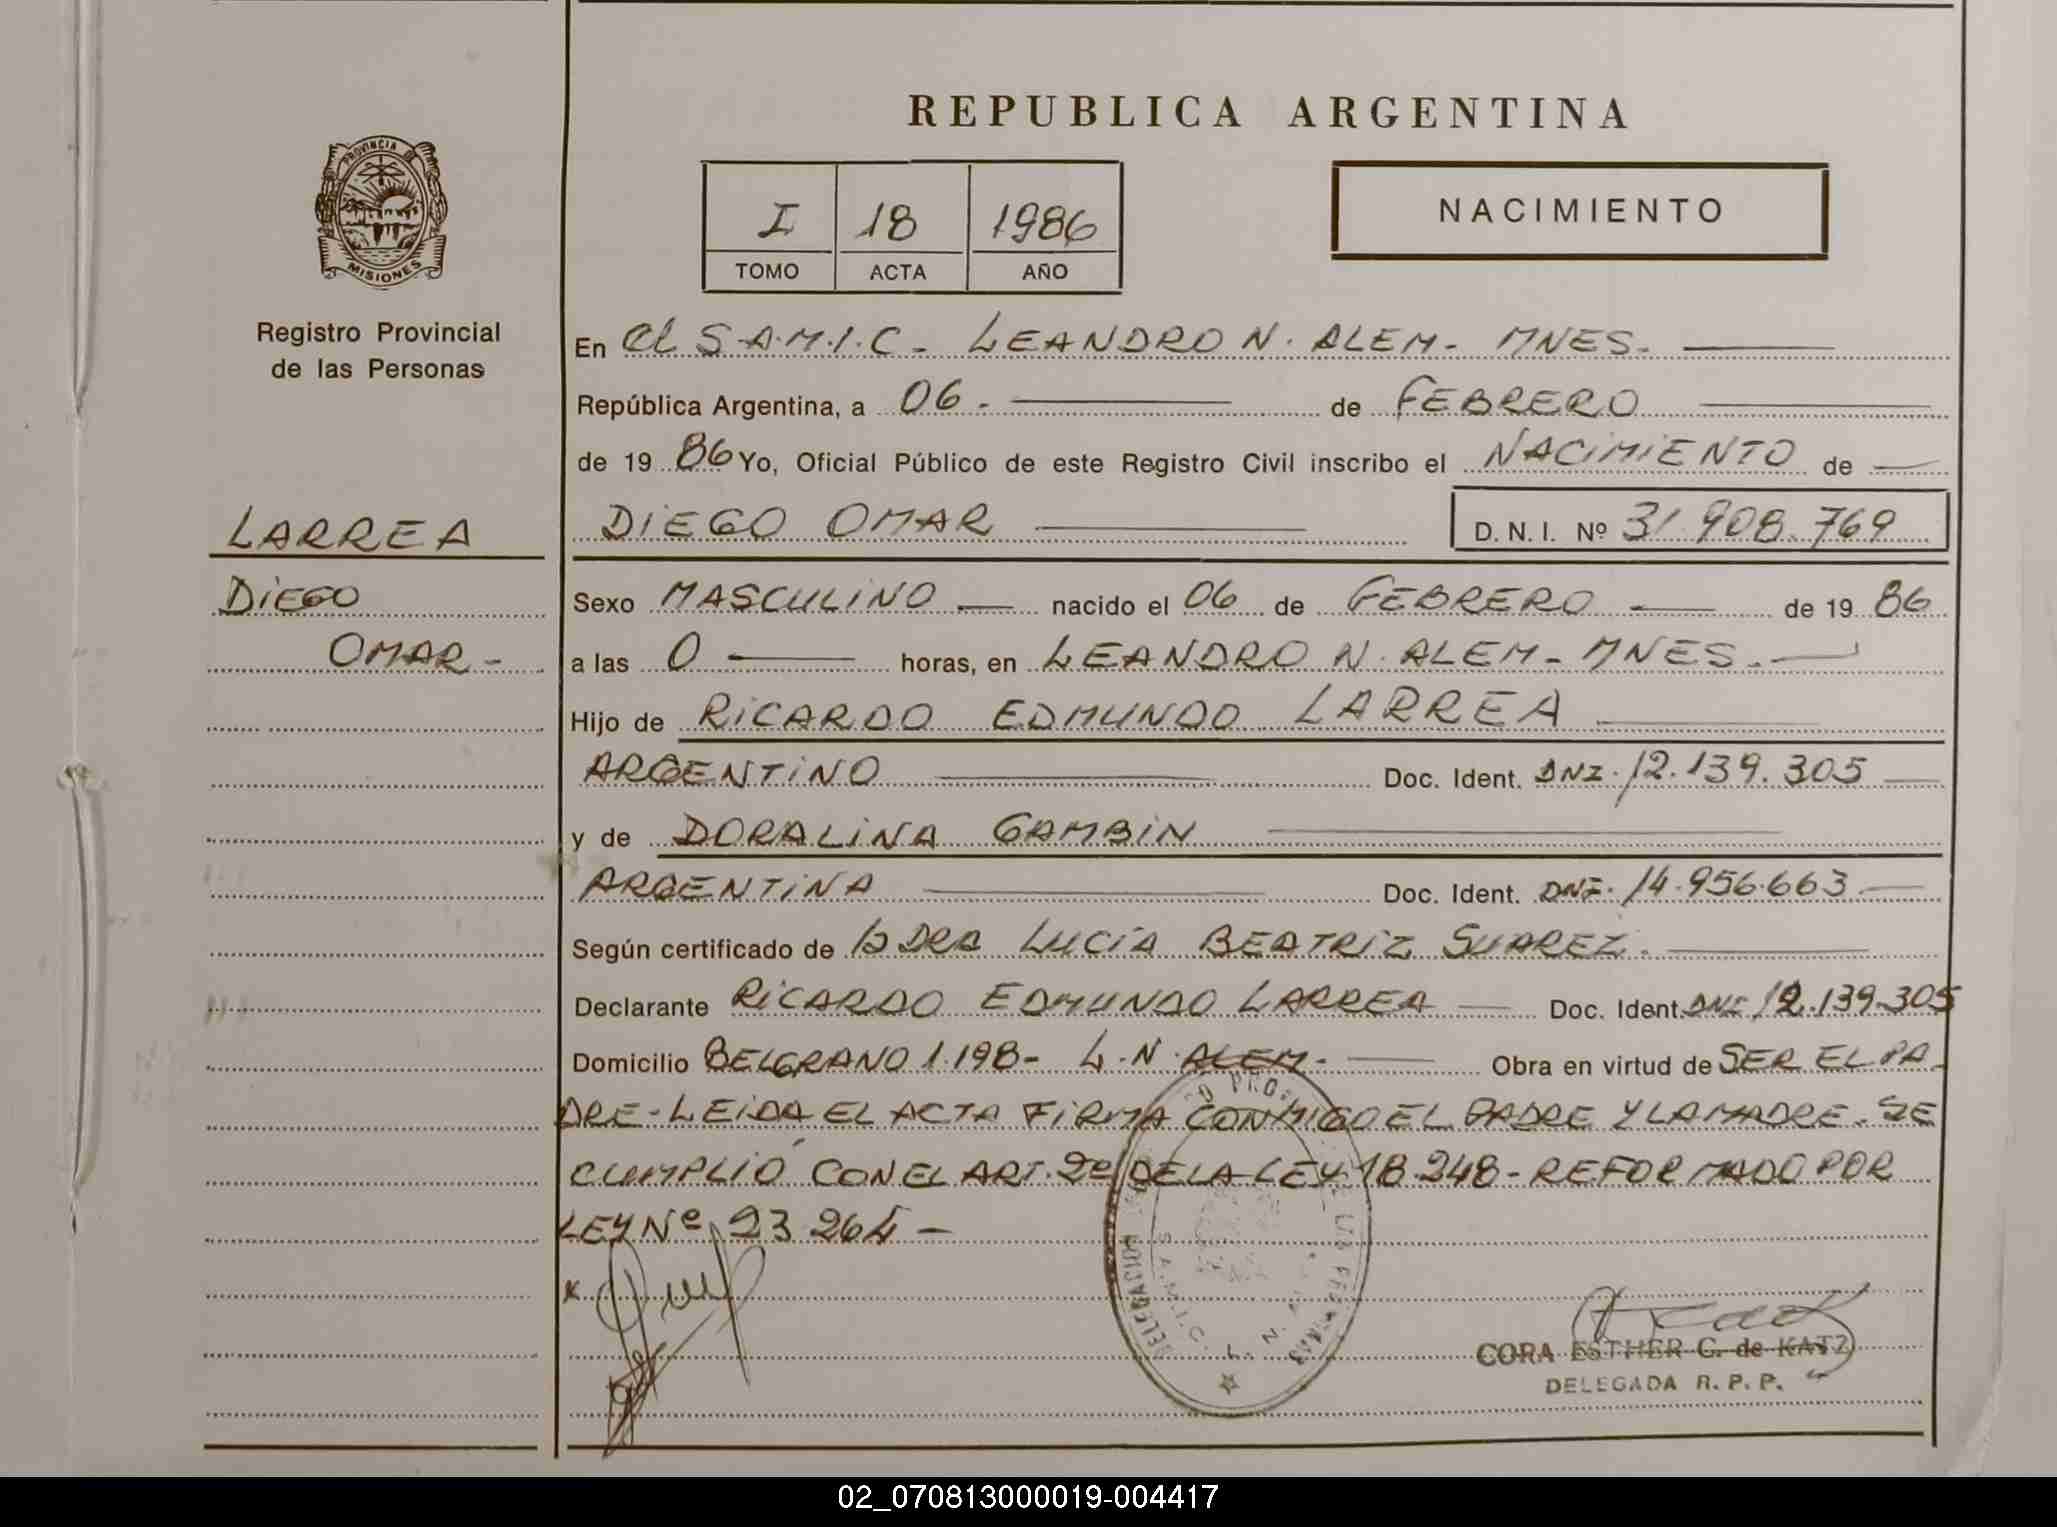 REPUBLICA ARGENTINA
PROVINCIA DE
MISIONES
Registro Provincial
de las Personas
I 18 1986
TOMO ACTA AÑO
NACIMIENTO
LARREA
DIEGO
OMAR-
En el S.A.M.I.C- LEANDRO N. ALEM- MNES.
República Argentina, a 06. de FEBRERO
de 1986 Yo, Oficial Público de este Registro Civil inscribo el NACIMIENTO de
DIEGO OMAR D. N. I. Nº 31.908.769
Sexo MASCULINO nacido el 06 de FEBRERO de 1986
a las 0 horas, en LEANDRO N. ALEM- MNES.
Hijo de RICARDO EDMUNDO LARREA
ARGENTINO Doc. Ident. DNI. 12.139.305
y de DORALINA GAMBIN
ARGENTINA Doc. Ident. DNI. 14.956.663
Según certificado de la DRA LUCIA BEATRIZ SUAREZ.
Declarante RICARDO EDMUNDO LARREA Doc. Ident. DNI 12.139.305
Domicilio BELGRANO 1.198- L.N. ALEM- Obra en virtud de SER EL PA
DRE-LEIDA EL ACTA FIRMA CONMIGO EL PADRE Y LA MADRE. SE
CUMPLIÓ CON EL ART. 2º DE LA LEY 18.248-REFORMADO POR
LEY Nº 23 264-
x
DELEGACION
S.A.M.I.C. L. N.
CORA ESTHER G. de KATZ
DELEGADA R. P. P.
02_070813000019-004417